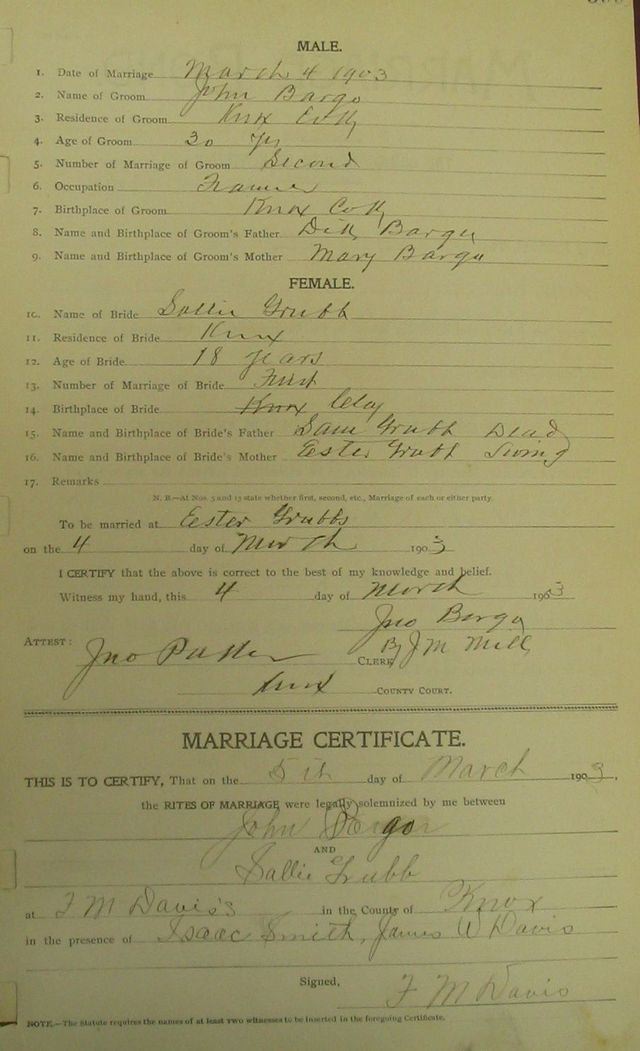 MALE.
1. Date of Marriage March 4 1903
2. Name of Groom John Bargo
3. Residence of Groom Knox Co Ky
4. Age of Groom 30 yrs
5. Number of Marriage of Groom Second
6. Occupation Framer
7. Birthplace of Groom Knox Co Ky
8. Name and Birthplace of Groom's Father Bargu
9. Name and Birthplace of Groom's Mother Mary Bargu
FEMALE.
10. Name of Bride Sallie Grubb
11. Residence of Bride Knox
12. Age of Bride 18 years
13. Number of Marriage of Bride First
14. Birthplace of Bride Knox Clay
15. Name and Birthplace of Bride's Father Sam Grubb Dead
16. Name and Birthplace of Bride's Mother Ester Grubb Living
17. Remarks
N. B.—At Nos. 5 and 13 state whether first, second, etc., Marriage of each or either party.
To be married at Eester Grubbs
on the 4 day of March 1903
I CERTIFY that the above is correct to the best of my knowledge and belief.
Witness my hand, this 4 day of March 1903
Jno Bargu
ATTEST: Jno Parker CLERK By J M Mill
Knox COUNTY COURT.
MARRIAGE CERTIFICATE.
THIS IS TO CERTIFY, That on the 5th day of March 1903,
the RITES OF MARRIAGE were legally solemnized by me between
John Bargo
AND
Sallie Grubb
at F M Davis's in the County of Knox
in the presence of Isaac Smith, James W Davis
Signed,
F M Davis
NOTE.—The Statute requires the names of at least two witnesses to be inserted in the foregoing Certificate.